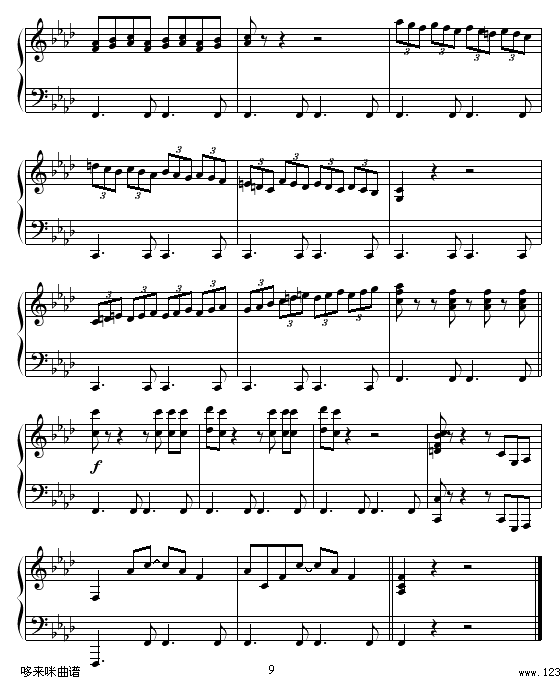 3 3 3 3
3 3 3 3 3 3 3 3
3 3 3 3 3 3 3 3
f
哆来咪曲谱 9 www.123